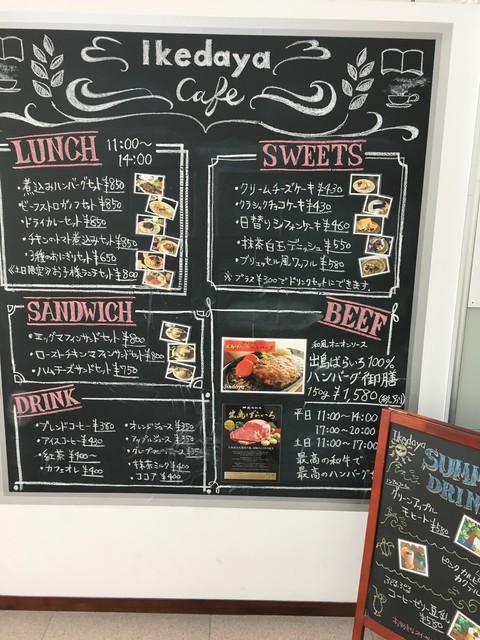 Ikedaya
Cafe
LUNCH 11:00～
14:00
・煮込みハンバーグセット ¥850
・ビーフストロガノフセット ¥850
・ドライカレーセット ¥850
・チキンのトマト煮込みセット ¥850
・3種のおにぎりセット ¥650
《土日限定》お子様ランチセット ¥800
SWEETS
・クリームチーズケーキ ¥430
・クラシックチョコケーキ ¥430
・日替りシフォンケーキ ¥460
・抹茶白玉デニッシュ ¥550
・ブリュッセル風ワッフル ¥580
※プラス¥300でドリンクセットにできます。
SANDWICH
・エッグマフィンサンドセット ¥800
・ローストチキンマフィンサンドセット ¥800
・ハムチーズサンドセット ¥750
DRINK
・ブレンドコーヒー ¥380
・アイスコーヒー ¥430
・紅茶 ¥400～
・カフェオレ ¥400
・オレンジジュース ¥350
・アップルジュース ¥350
・グレープ ジュース ¥350
・抹茶ミルク ¥400
・ココア ¥400
BEEF
和風オニオンソース
出島ばらいろ 100%
ハンバーグ御膳
150g ¥1,580
平日 11:00～14:00
17:00～20:00
土日 11:00～17:00
最高の和牛で
最高のハンバーグ
出島ばらいろ
Ikedaya
SUMM
DRIN
グリーンアップル
モヒート ¥580
ピンクカルピ
カクテル
ぷるぷる
コーヒーゼリー
¥580